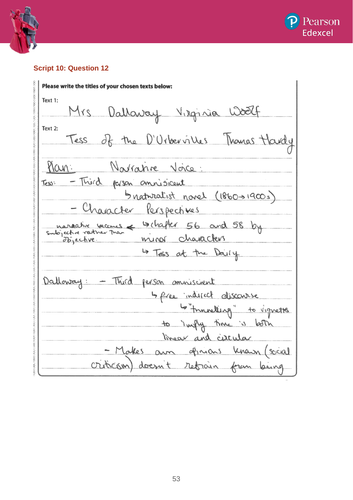 Pearson
Edexcel
Script 10: Question 12
Please write the titles of your chosen texts below:
Text 1:
Mrs Dalloway Virginia Woolf
Text 2:
Tess of the D'Urbervilles Thomas Hardy
Plan: Narrative Voice:
Tess: - Third person omniscient
↳ naturalist novel (1860→1900s)
- Character Perspectives
narrative becomes ← ↳ chapter 56 and 58 by
subjective rather than minor characters
objective
↳ Tess at the Dairy
Dalloway: - Third person omniscient
↳ free indirect discourse
↳ "tunnelling" to vignettes
to imply time is both
linear and circular
- Makes own opinions known (social
criticism) doesn't refrain from being
53